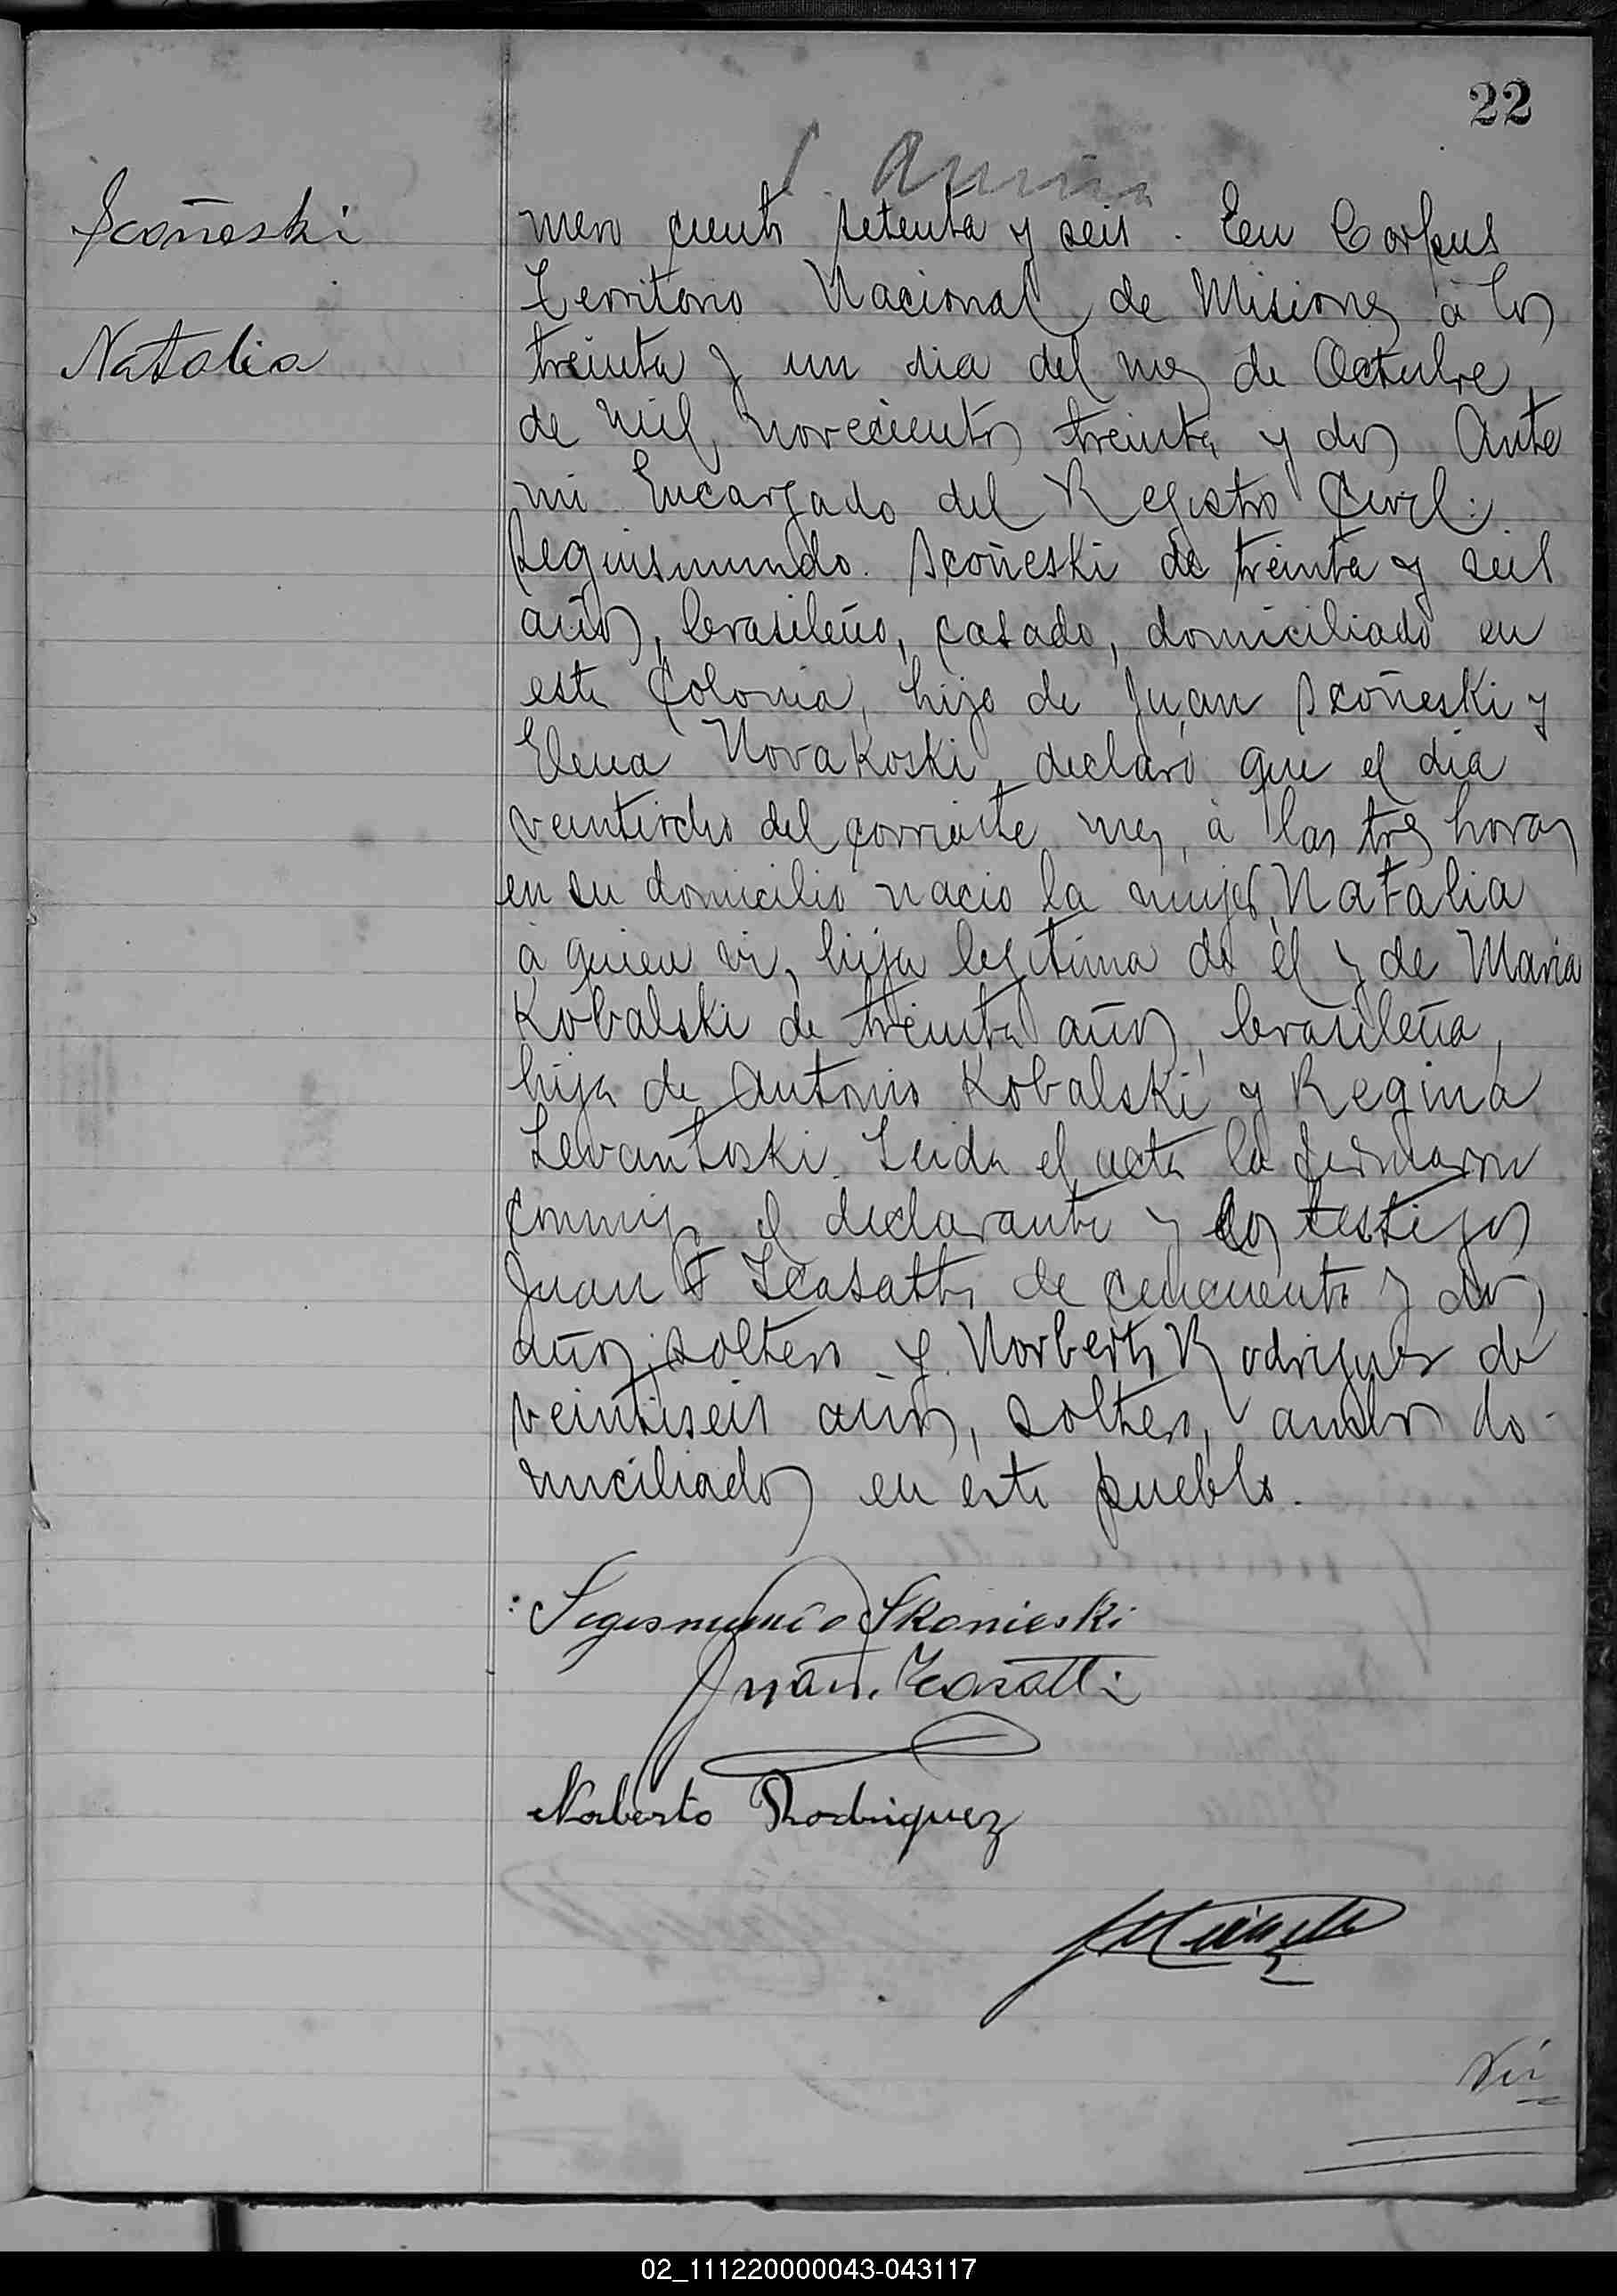 22
Scoñeski
Natalia
mero ciento setenta y seis. En Corpus
Territorio Nacional de Misiones á los
treinta y un dia del mes de Octubre
de mil novecientos treinta y dos Ante
mi Encargado del Registro Civil:
Seguismundo Scoñeski de treinta y seis
años, brasileño, casado, domiciliado en
esta Colonia, hijo de Juan Scoñeski y
Elena Novakoski, declaró que el dia
veintiocho del corriente mes, á las tres horas
en su domicilio nació la mujer, Natalia
á quien vi, hija legitima de él y de Maria
Kobalski de treinta años, brasileña,
hija de Antonio Kobalski y Regina
Levantoski. Leida el acta la firmaron
conmigo el declarante y los testigos
Juan F de cincuenta y dos
años, soltero y Norberto Rodriguez de
veintiseis años, soltero, ambos do-
miciliados en este pueblo.
Segismundo Skonieski
Juan
Norberto Rodriguez
02_111220000043-043117